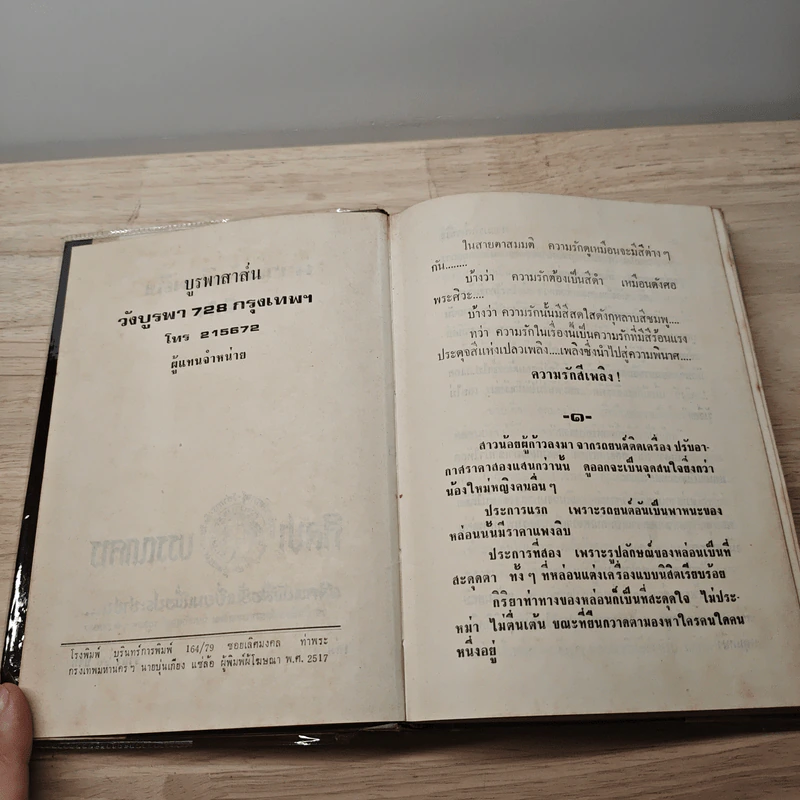 บูรพาสาส์น
วังบูรพา 728 กรุงเทพฯ
โทร 215672
ผู้แทนจำหน่าย
โรงพิมพ์ บุรินทร์การพิมพ์ 164/79 ซอยเลิศมงคล ท่าพระ
กรุงเทพมหานครฯ นายบุ่นเกียง แซ่ล้อ ผู้พิมพ์ผู้โฆษณา พ.ศ. 2517
ในสายตาสมมติ ความรักดูเหมือนจะมีสีต่าง ๆ
กัน........
บ้างว่า ความรักต้องเป็นสีดำ เหมือนดังศอ
พระศิวะ....
บ้างว่า ความรักนั้นมีสีสดใสดังกุหลาบสีชมพู....
ทว่า ความรักในเรื่องนี้เป็นความรักที่มีสีร้อนแรง
ประดุจสีแห่งเปลวเพลิง....เพลิงซึ่งนำไปสู่ความพินาศ....
ความรักสีเพลิง !
-๑-
สาวน้อยผู้ก้าวลงมา จากรถยนต์ติดเครื่อง ปรับอา-
กาศราคาสองแสนกว่านั้น ดูออกจะเป็นจุดสนใจยิ่งกว่า
น้องใหม่หญิงคนอื่น ๆ
ประการแรก เพราะรถยนต์อันเป็นพาหนะของ
หล่อนนั้นมีราคาแพงลิบ
ประการที่สอง เพราะรูปลักษณ์ของหล่อนเป็นที่
สะดุดตา ทั้ง ๆ ที่หล่อนแต่งเครื่องแบบนิสิตเรียบร้อย
กิริยาท่าทางของหล่อนก็เป็นที่สะดุดใจ ไม่ประ-
หม่า ไม่ตื่นเต้น ขณะที่ยืนกวาดตามองหาใครคนใดคน
หนึ่งอยู่